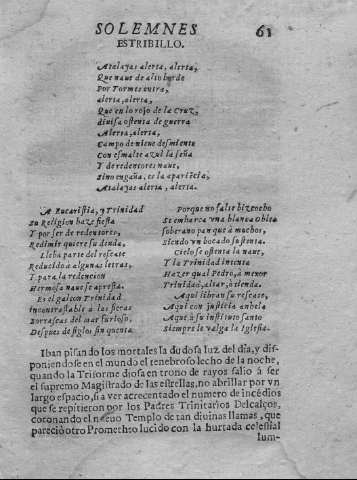 SOLEMNES 61
ESTRIBILLO.
Atalayas alerta, alerta,
Que naue de alto borde
Por Tormes entra,
alerta, alerta,
Que en lo rojo de la Cruz,
diuisa ostenta de guerra
Alerta, alerta,
Campo de nieue desmiente
Con esmalte azul la seña
Y de redentores naue,
Sino engaña, es la apariẽcia,
Atalayas alerta, alerta.
A Eucaristia, y Trinidad
Su Religion haze fiesta
Y por ser de redentores,
Redimir quiere su deuda,
Lleba parte del rescate
Reducido à algunas letras,
Y para la redencion
Hermosa naue se apresta.
Es el galeon Trinidad
Incontrastable à las fieras
Borrascas del mar furioso,
Despues de siglos sin quenta.
Porque no falte bizcocho
Se embarca vna blanca Oblea
soberano pan que à muchos,
Siendo vn bocado sustenta.
Cielo se ostenta la naue,
Y la Trinidad intenta
Hazer qual Pedro, à menor
Trinidad, altar, ò tienda.
Aqui libran su rescate,
Aqui con justicia anhela
Aqui à su instituto santo
Siempre le valga la Iglesia.
Iban pisando los mortales la dudosa luz del dia, y dis-
poniendose en el mundo el tenebroso lecho de la noche,
quando la Triforme diosa en trono de rayos salio à ser
el supremo Magistrado de las estrellas, no abrillar por vn
largo espacio, si a ver acrecentado el numero de incẽdios
que se repitieron por los Padres Trinitarios Descalços,
coronando en nueuo Templo de tan diuinas llamas, que
pareciò otro Promethèo lucido con la hurtada celestial
lum-